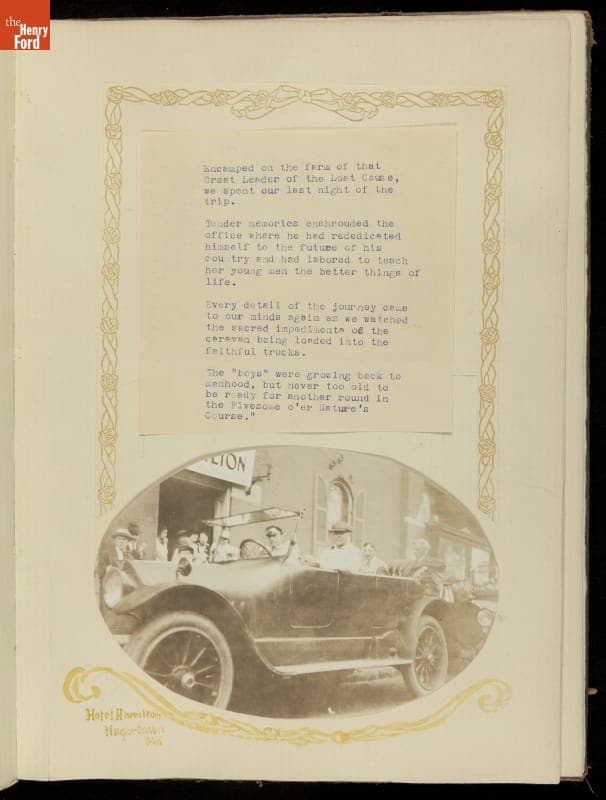 the
Henry
Ford
Encamped on the farm of that
Great Leader of the Lost Cause,
we spent our last night of the
trip.
Tender memories enshrouded the
office where he had rededicated
himself to the future of his
country and had labored to teach
her young men the better things of
life.
Every detail of the journey came
to our minds again as we watched
the sacred impedimenta of the
caravan being loaded into the
faithful trucks.
The "boys" were growing back to
manhood, but never too old to
be ready for another round in
the Fivesome o'er Nature's
Course."
LTON
Hotel Hamilton
Hagerstown
Md